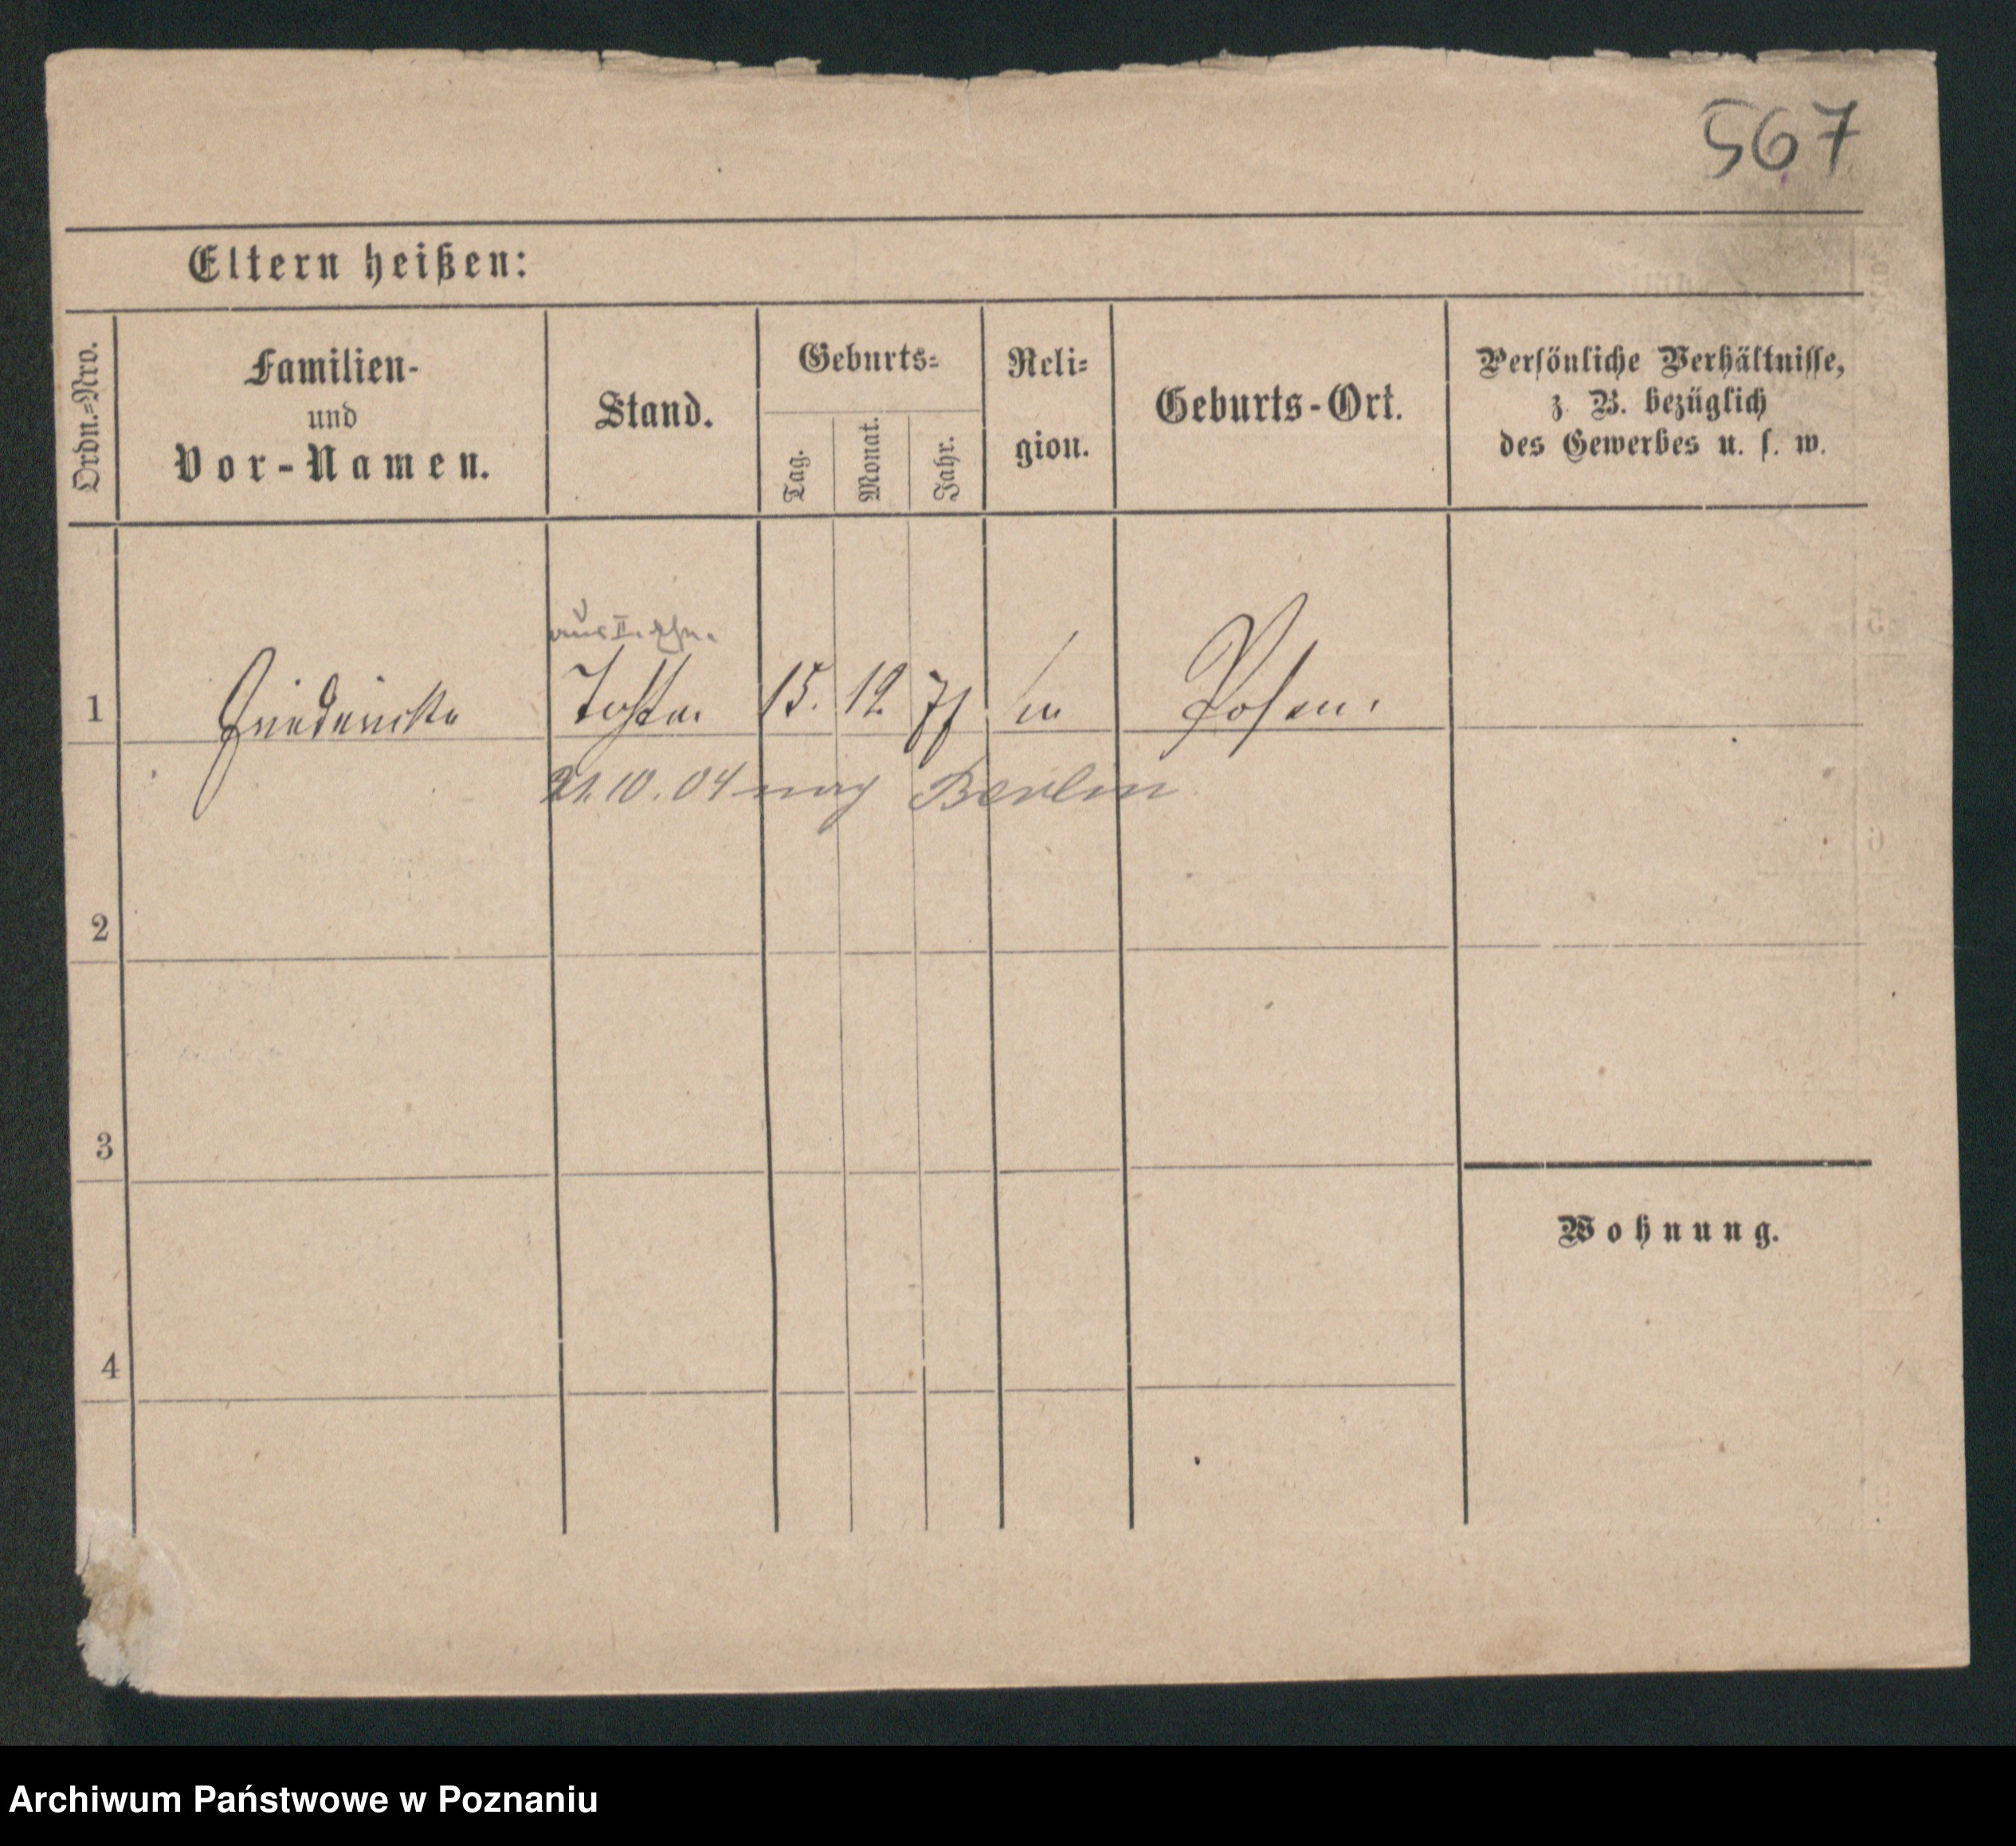 567
Eltern heißen:
Ordn.=Nro.
Familien-
und
Vor-Namen.
Stand.
Geburts=
Tag.
Monat.
Jahr.
Reli=
gion.
Geburts-Ort.
Persönliche Verhältnisse,
z. B. bezüglich
des Gewerbes u. s. w.
aus I.
1 Friedericke Tochter 15. 12. Posen.
21.10.04 nach Berlin
2
3
4
Wohnung.
Archiwum Państwowe w Poznaniu